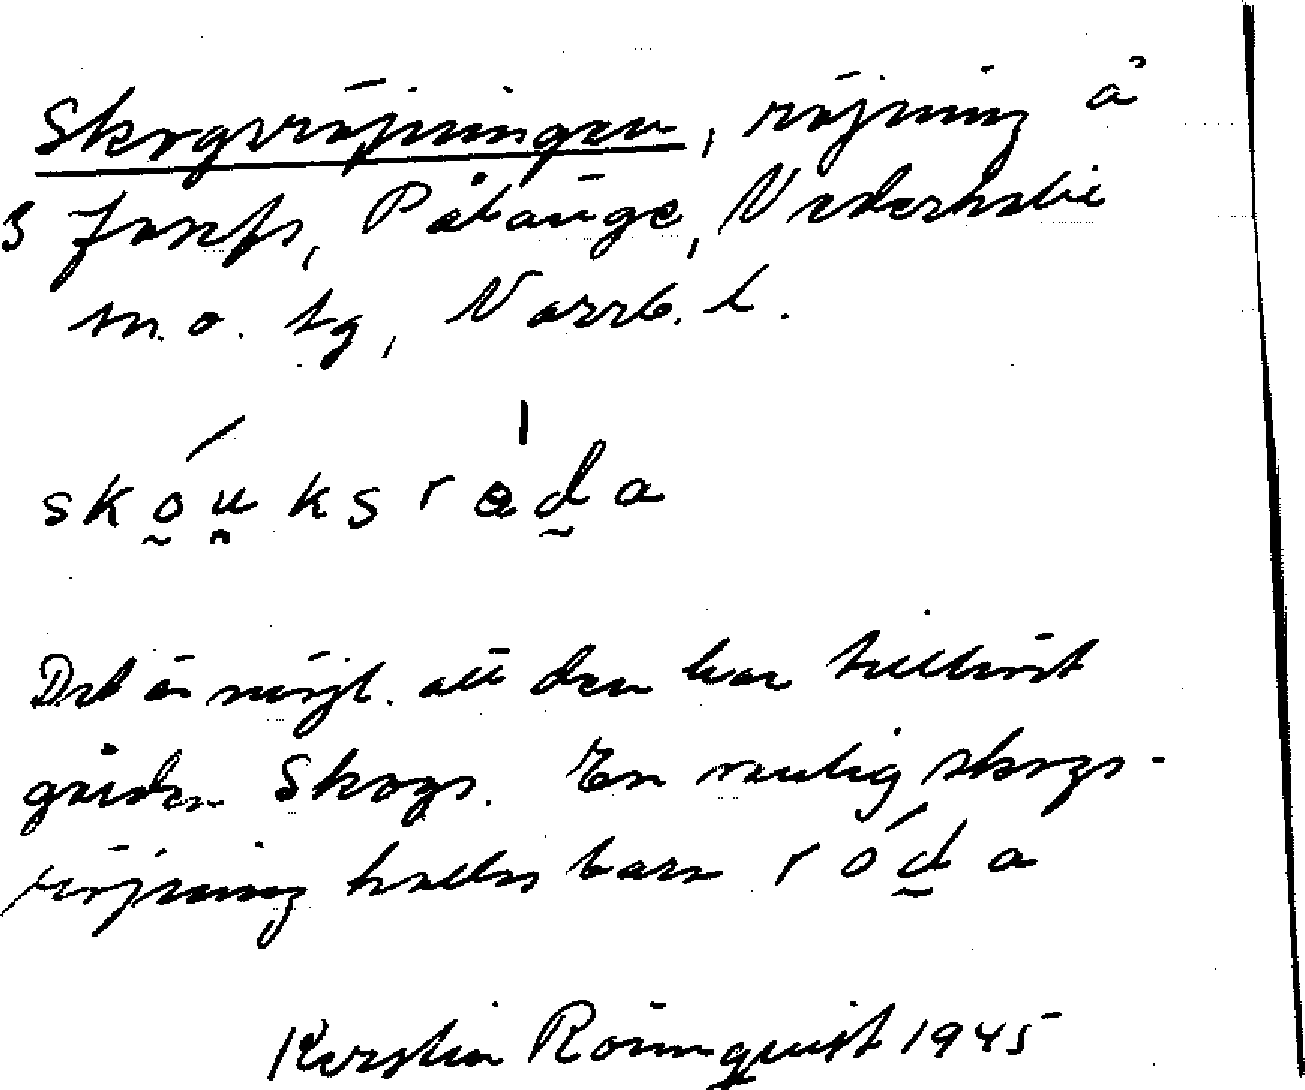 Skogsröjningen, röjning å
3 Josefs, Pålänge, Nederkalix
sn. o. tg, Norrb. l.
skóu̯ksrøda
Det är möjl. att den har tillhört
gården Skogs. En vanlig skogs-
röjning kallas bara róda
Kerstin Rönnquist 1945